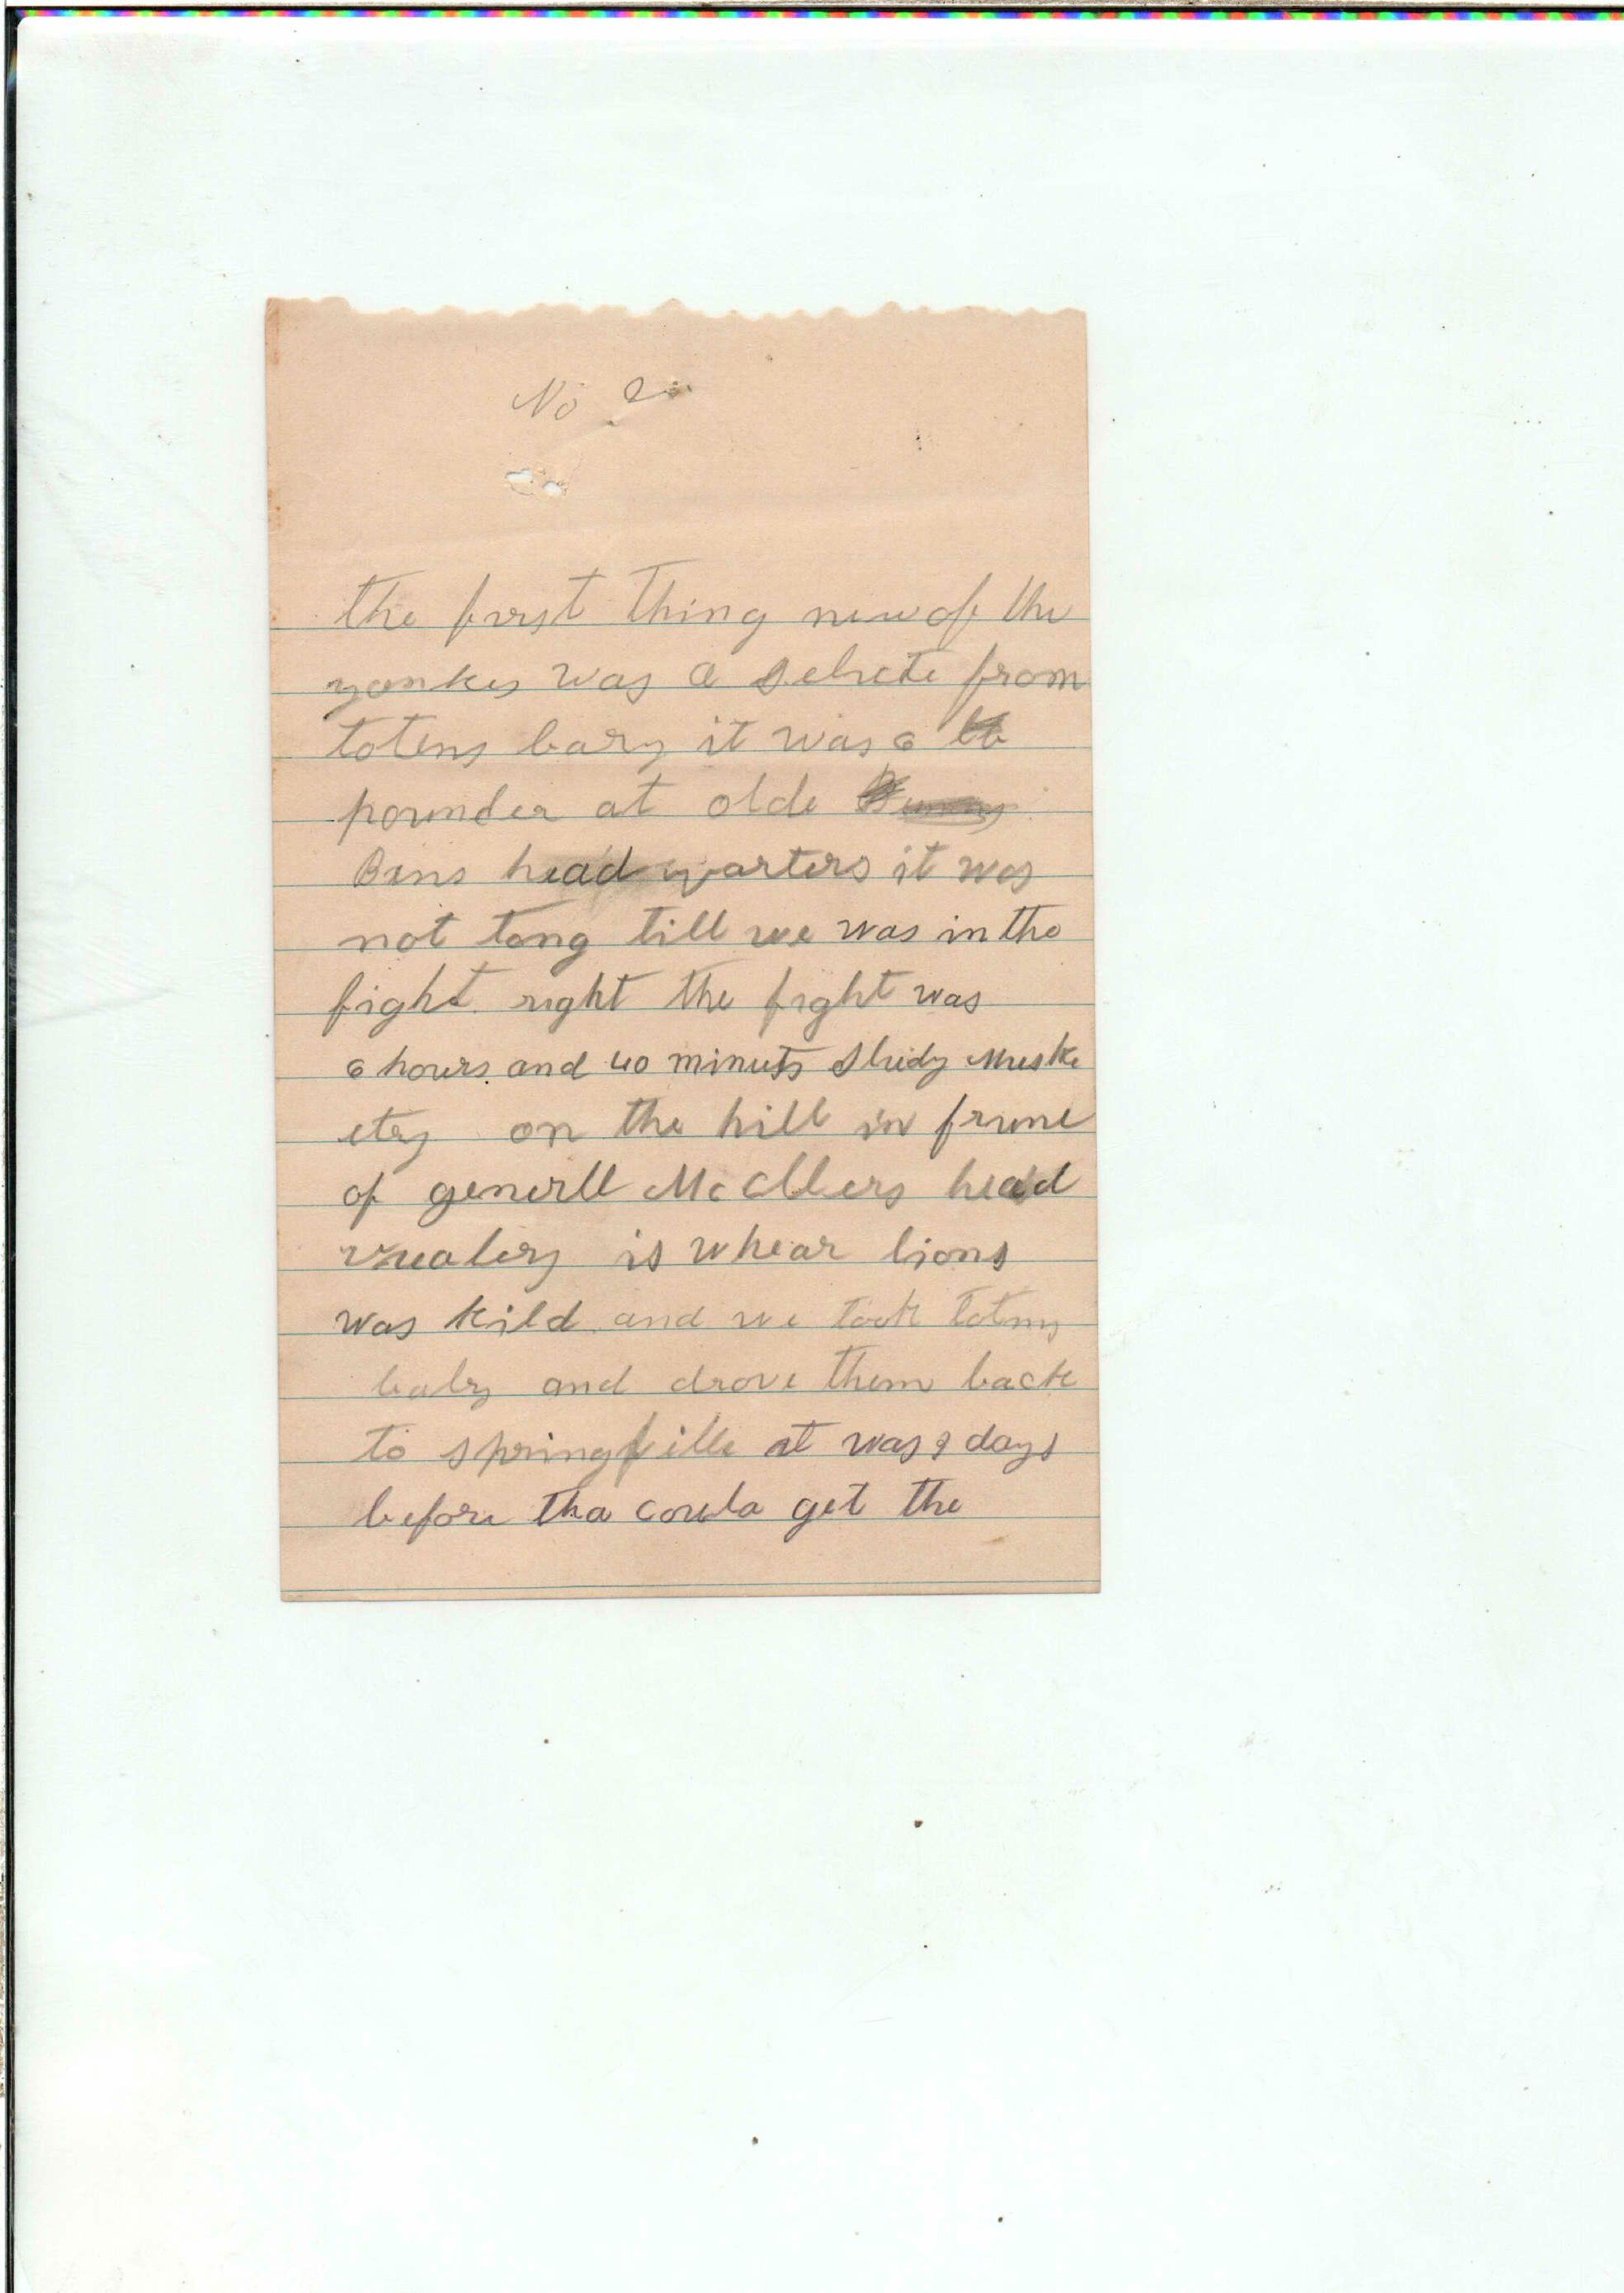 No 2
the first thing new of the
yankes was a selute from
totens bary it was a
pounder at olde
Bens head qwarters it was
not long till we was in the
fight right the fight was
6 hours and 40 minuts Studdy Muske
etry on the hill in frunt
of generll McCllers head
is whear lions
was kild and we took totns
baty and drove them back
to springfille it was 9 days
before tha coula get the